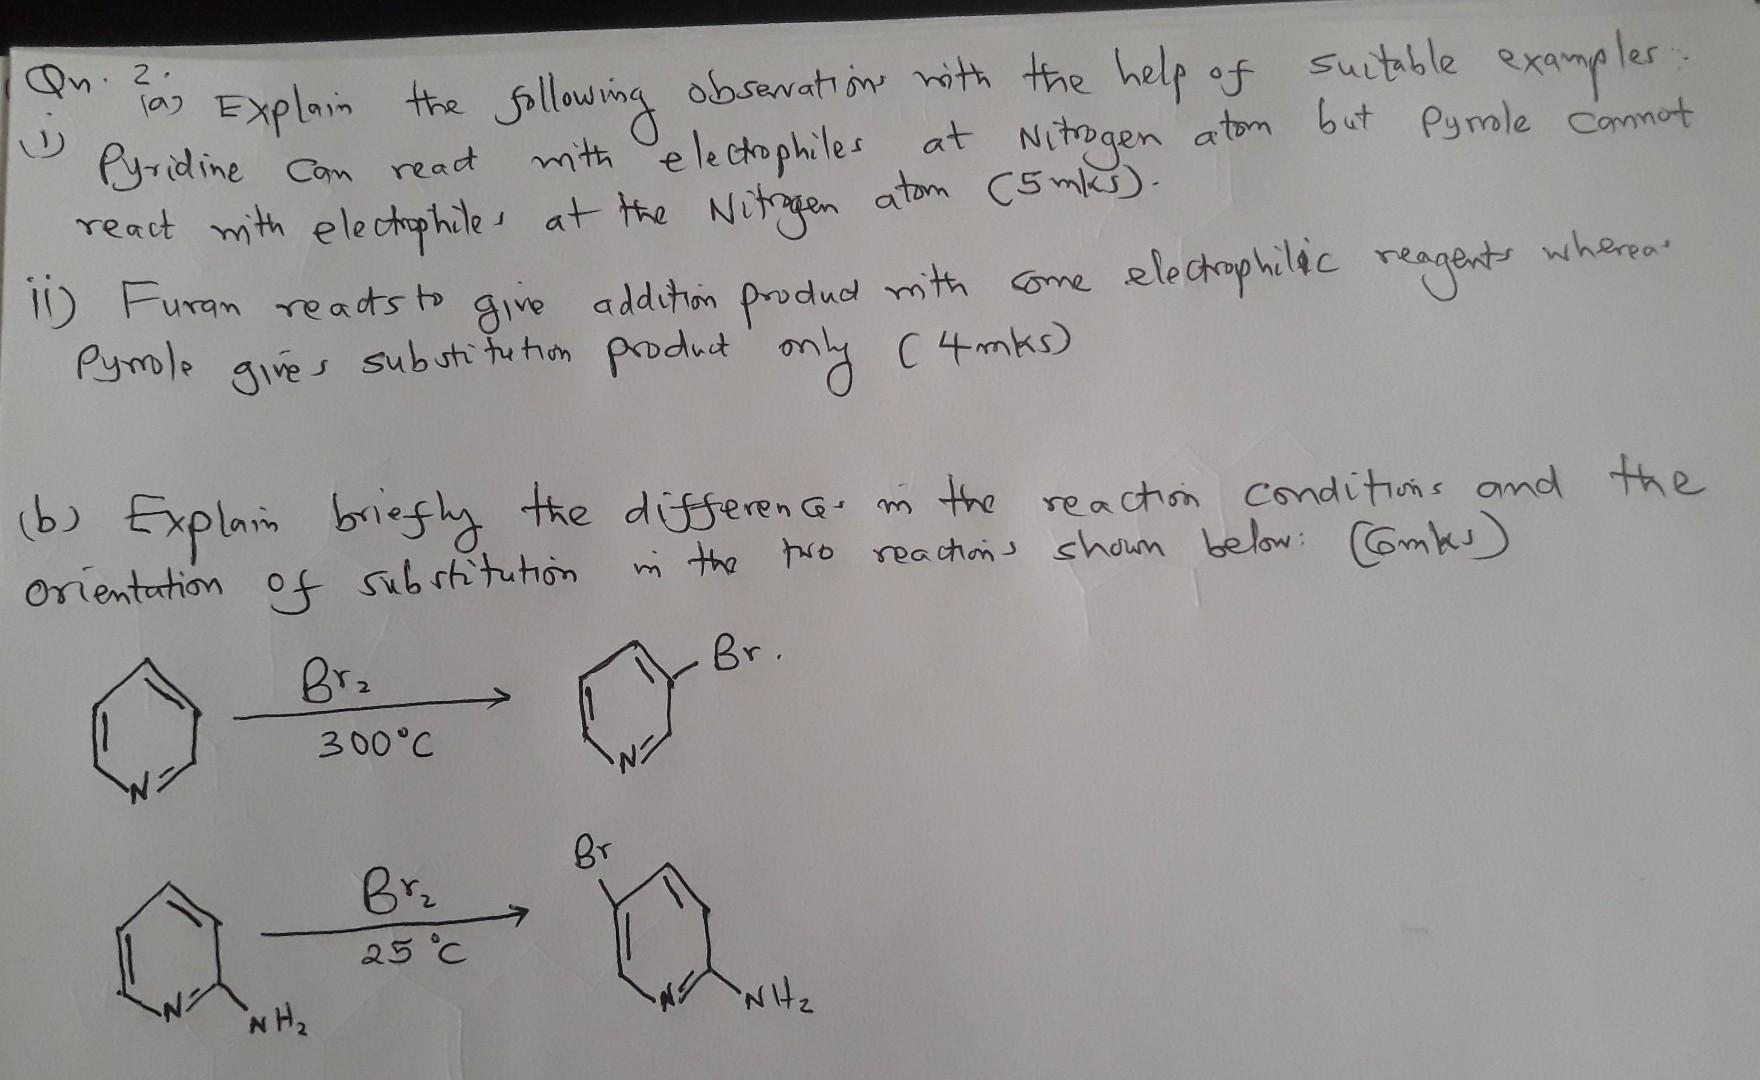 Qn. 2.
(a) Explain the following observations with the help of suitable examples:
i) Pyridine can react with electrophiles at Nitrogen atom but Pyrrole cannot
react with electrophiles at the Nitrogen atom (5mks).
ii) Furan reacts to give addition product with some electrophilic reagents whereas
Pyrrole gives substitution product only (4mks)
(b) Explain briefly the differences in the reaction conditions and the
orientation of substitution in the two reactions shown below: (6mks)
Br.
Br2
300°C
N
N
Br
Br2
25°C
N
NH2
N
NH2